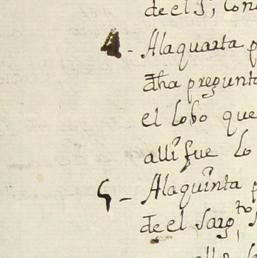 de el s, con
4 - A la quarta p
dha pregunta
el lobo que
alli fue lo
5 - A la quinta p
de el sargto s